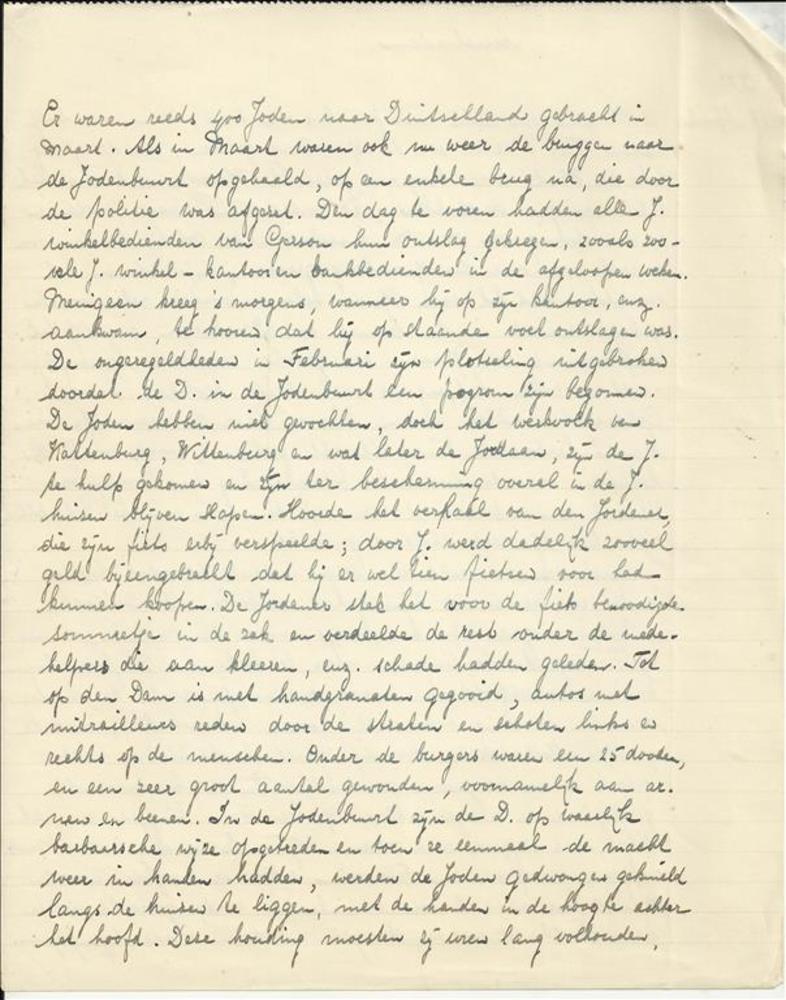 Er waren reeds 400 Joden naar Duitschland gebracht in
Maart. Als in Maart waren ook nu weer de bruggen naar
de Jodenbuurt opgehaald, op een enkele brug na, die door
de politie was afgezet. Den dag te voren hadden alle J.
winkelbedienden van Gerson hun ontslag gekregen, zooals zoo-
vele J. winkel- kantoor en bankbedienden in de afgeloopen weken.
Menigeen kreeg 's morgens, wanneer hij op zijn kantoor, enz.
aankwam, te hooren dat hij op staande voet ontslagen was.
De ongeregeldheden in Februari zijn plotseling uitgebroken
doordat de D. in de Jodenbuurt een pogrom zijn begonnen.
De Joden hebben niet gevochten, doch het werkvolk van
Kattenburg, Wittenburg en wat later de Jordaan, zijn de J.
te hulp gekomen en zijn ter bescherming overal in de J.
huizen blijven slapen. Hoorde het verhaal van den Jordener,
die zijn fiets erbij verspeelde; door J. werd dadelijk zooveel
geld bijeengebracht dat hij er wel tien fietsen voor had
kunnen koopen. De Jordener stak het voor de fiets benoodigde
sommetje in de zak en verdeelde de rest onder de mede-
helpers die aan kleeren, enz. schade hadden geleden. Tot
op den Dam is met handgranaten gegooid, autos met
mitrailleurs reden door de straten en schoten links en
rechts op de menschen. Onder de burgers waren een 25 dooden,
en een zeer groot aantal gewonden, voornamelijk aan ar-
men en beenen. In de Jodenbuurt zijn de D. op waarlijk
barbaarsche wijze opgetreden en toen ze eenmaal de macht
weer in handen hadden, werden de Joden gedwongen geknield
langs de huizen te liggen, met de handen in de hoogte achter
het hoofd. Deze houding moesten zij uren lang volhouden,